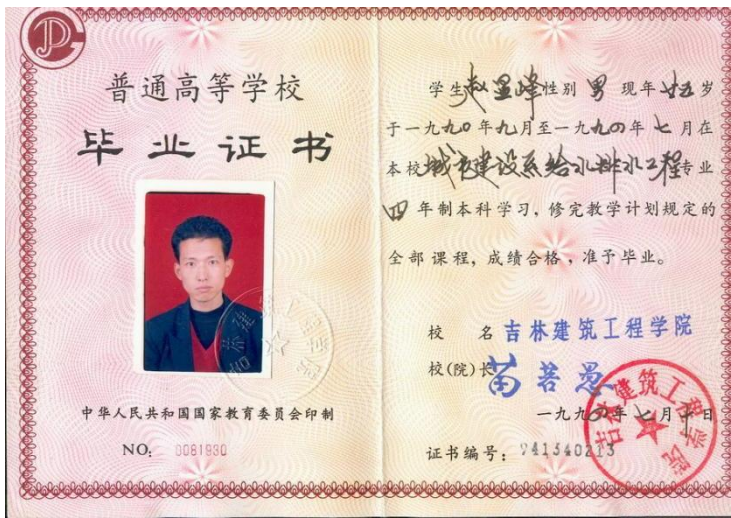 普通高等学校
毕业证书
中华人民共和国国家教育委员会印制
NO: 0081930
学生赵显峰性别男现年廿五岁
于一九九〇年九月至一九九四年七月在
本校城市建设系给水排水工程专业
四年制本科学习，修完教学计划规定的
全部课程，成绩合格，准予毕业。
校 名 吉林建筑工程学院
校(院)长 苗若愚
一九九四年七月十日
证书编号: 941340213
吉林建筑工程学院
吉林建筑工程学院